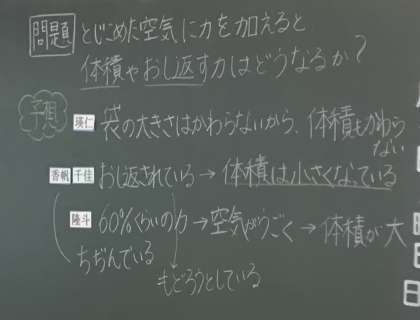 問題 とじこめた空気に力を加えると
体積やおし返す力はどうなるか?
予想
瑛仁 袋の大きさはかわらないから、体積もかわらない
香帆 千佳 おし返されている→体積は小さくなっている
隆斗 60%くらいの力→空気がうごく→体積が大
ちぢんでいる
もどろうとしている